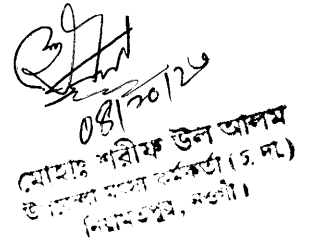 ০৪/১০/২৩
মোহাঃ শরীফ উল আলম
উপজেলা মৎস্য কর্মকর্তা (অ. দা.)
নিয়ামতপুর, নওগাঁ।